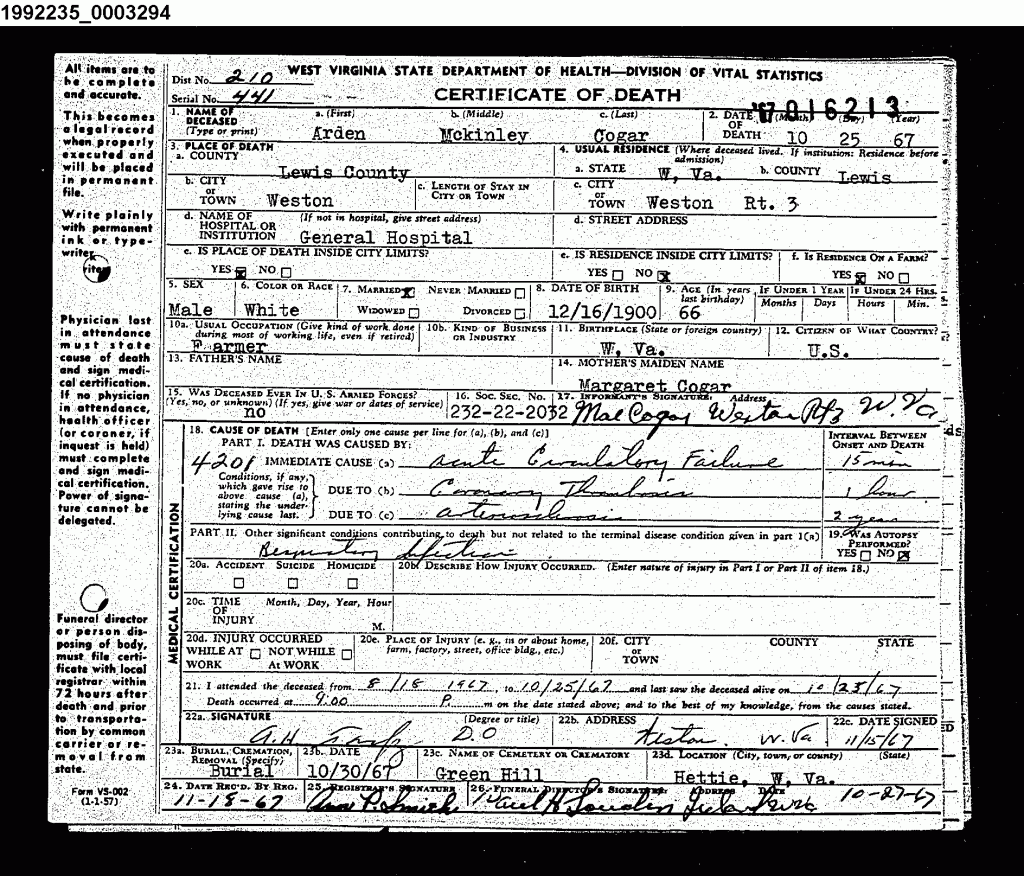 1992235_0003294
WEST VIRGINIA STATE DEPARTMENT OF HEALTH—DIVISION OF VITAL STATISTICS
Dist No. 210
Serial No. 441
CERTIFICATE OF DEATH
67 016213
All items are to be complete and accurate.
This becomes a legal record when properly executed and will be placed in permanent file.
Write plainly with permanent ink or typewriter.
Physician last in attendance must state cause of death and sign medical certification. If no physician in attendance, health officer (or coroner, if inquest is held) must complete and sign medical certification. Power of signature cannot be delegated.
Funeral director or person disposing of body, must file certificate with local registrar within 72 hours after death and prior to transportation by common carrier or removal from state.
Form VS-002
(1-1-57)
1. NAME OF DECEASED (Type or print) a. (First) b. (Middle) c. (Last)
Arden Mckinley Cogar
2. DATE OF DEATH (Month) (Day) (Year)
10 25 67
3. PLACE OF DEATH
a. COUNTY
Lewis County
4. USUAL RESIDENCE (Where deceased lived. If institution: Residence before admission)
a. STATE W. Va. b. COUNTY Lewis
b. CITY or TOWN Weston
c. LENGTH OF STAY IN CITY OR TOWN
c. CITY or TOWN Weston Rt. 3
d. NAME OF HOSPITAL OR INSTITUTION (If not in hospital, give street address)
General Hospital
d. STREET ADDRESS
e. IS PLACE OF DEATH INSIDE CITY LIMITS?
YES x NO
e. IS RESIDENCE INSIDE CITY LIMITS?
YES NO x
f. IS RESIDENCE ON A FARM?
YES x NO
5. SEX
Male
6. COLOR OR RACE
White
7. MARRIED x NEVER MARRIED
WIDOWED DIVORCED
8. DATE OF BIRTH
12/16/1900
9. AGE (In years last birthday)
66
IF UNDER 1 YEAR
Months Days
IF UNDER 24 HRS.
Hours Min.
10a. USUAL OCCUPATION (Give kind of work done during most of working life, even if retired)
Farmer
10b. KIND OF BUSINESS OR INDUSTRY
11. BIRTHPLACE (State or foreign country)
W. Va.
12. CITIZEN OF WHAT COUNTRY?
U.S.
13. FATHER'S NAME
14. MOTHER'S MAIDEN NAME
Margaret Cogar
15. WAS DECEASED EVER IN U. S. ARMED FORCES?
(Yes, no, or unknown) (If yes, give war or dates of service)
no
16. SOC. SEC. NO.
232-22-2032
17. INFORMANT'S SIGNATURE: Address
Mae Cogar Weston Rt 3 W. Va
MEDICAL CERTIFICATION
18. CAUSE OF DEATH [Enter only one cause per line for (a), (b), and (c)]
INTERVAL BETWEEN ONSET AND DEATH
PART I. DEATH WAS CAUSED BY:
4201 IMMEDIATE CAUSE (a) acute Circulatory Failure 15 min
Conditions, if any, which gave rise to above cause (a), stating the underlying cause last.
DUE TO (b) Coronary Thrombosis 1 hour
DUE TO (c) arteriosclerosis 2 years
PART II. Other significant conditions contributing to death but not related to the terminal disease condition given in part 1(a)
Respiratory infection
19. WAS AUTOPSY PERFORMED?
YES NO x
20a. ACCIDENT SUICIDE HOMICIDE
20b. DESCRIBE HOW INJURY OCCURRED. (Enter nature of injury in Part I or Part II of item 18.)
20c. TIME OF INJURY Month, Day, Year, Hour
M.
20d. INJURY OCCURRED
WHILE AT WORK NOT WHILE AT WORK
20e. PLACE OF INJURY (e. g., in or about home, farm, factory, street, office bldg., etc.)
20f. CITY or TOWN COUNTY STATE
21. I attended the deceased from 8/18 1967, to 10/25/67 and last saw the deceased alive on 10/25/67
Death occurred at 9:00 P. m on the date stated above; and to the best of my knowledge, from the causes stated.
22a. SIGNATURE (Degree or title)
D.O
22b. ADDRESS
Weston W. Va
22c. DATE SIGNED
11/15/67
23a. BURIAL, CREMATION, REMOVAL (Specify)
Burial
23b. DATE
10/30/67
23c. NAME OF CEMETERY OR CREMATORY
Green Hill
23d. LOCATION (City, town, or county) (State)
Hettie, W. Va.
24. DATE REC'D. BY REG.
11-18-67
25. REGISTRAR'S SIGNATURE
26. FUNERAL DIRECTOR'S SIGNATURE ADDRESS DATE
10-27-67